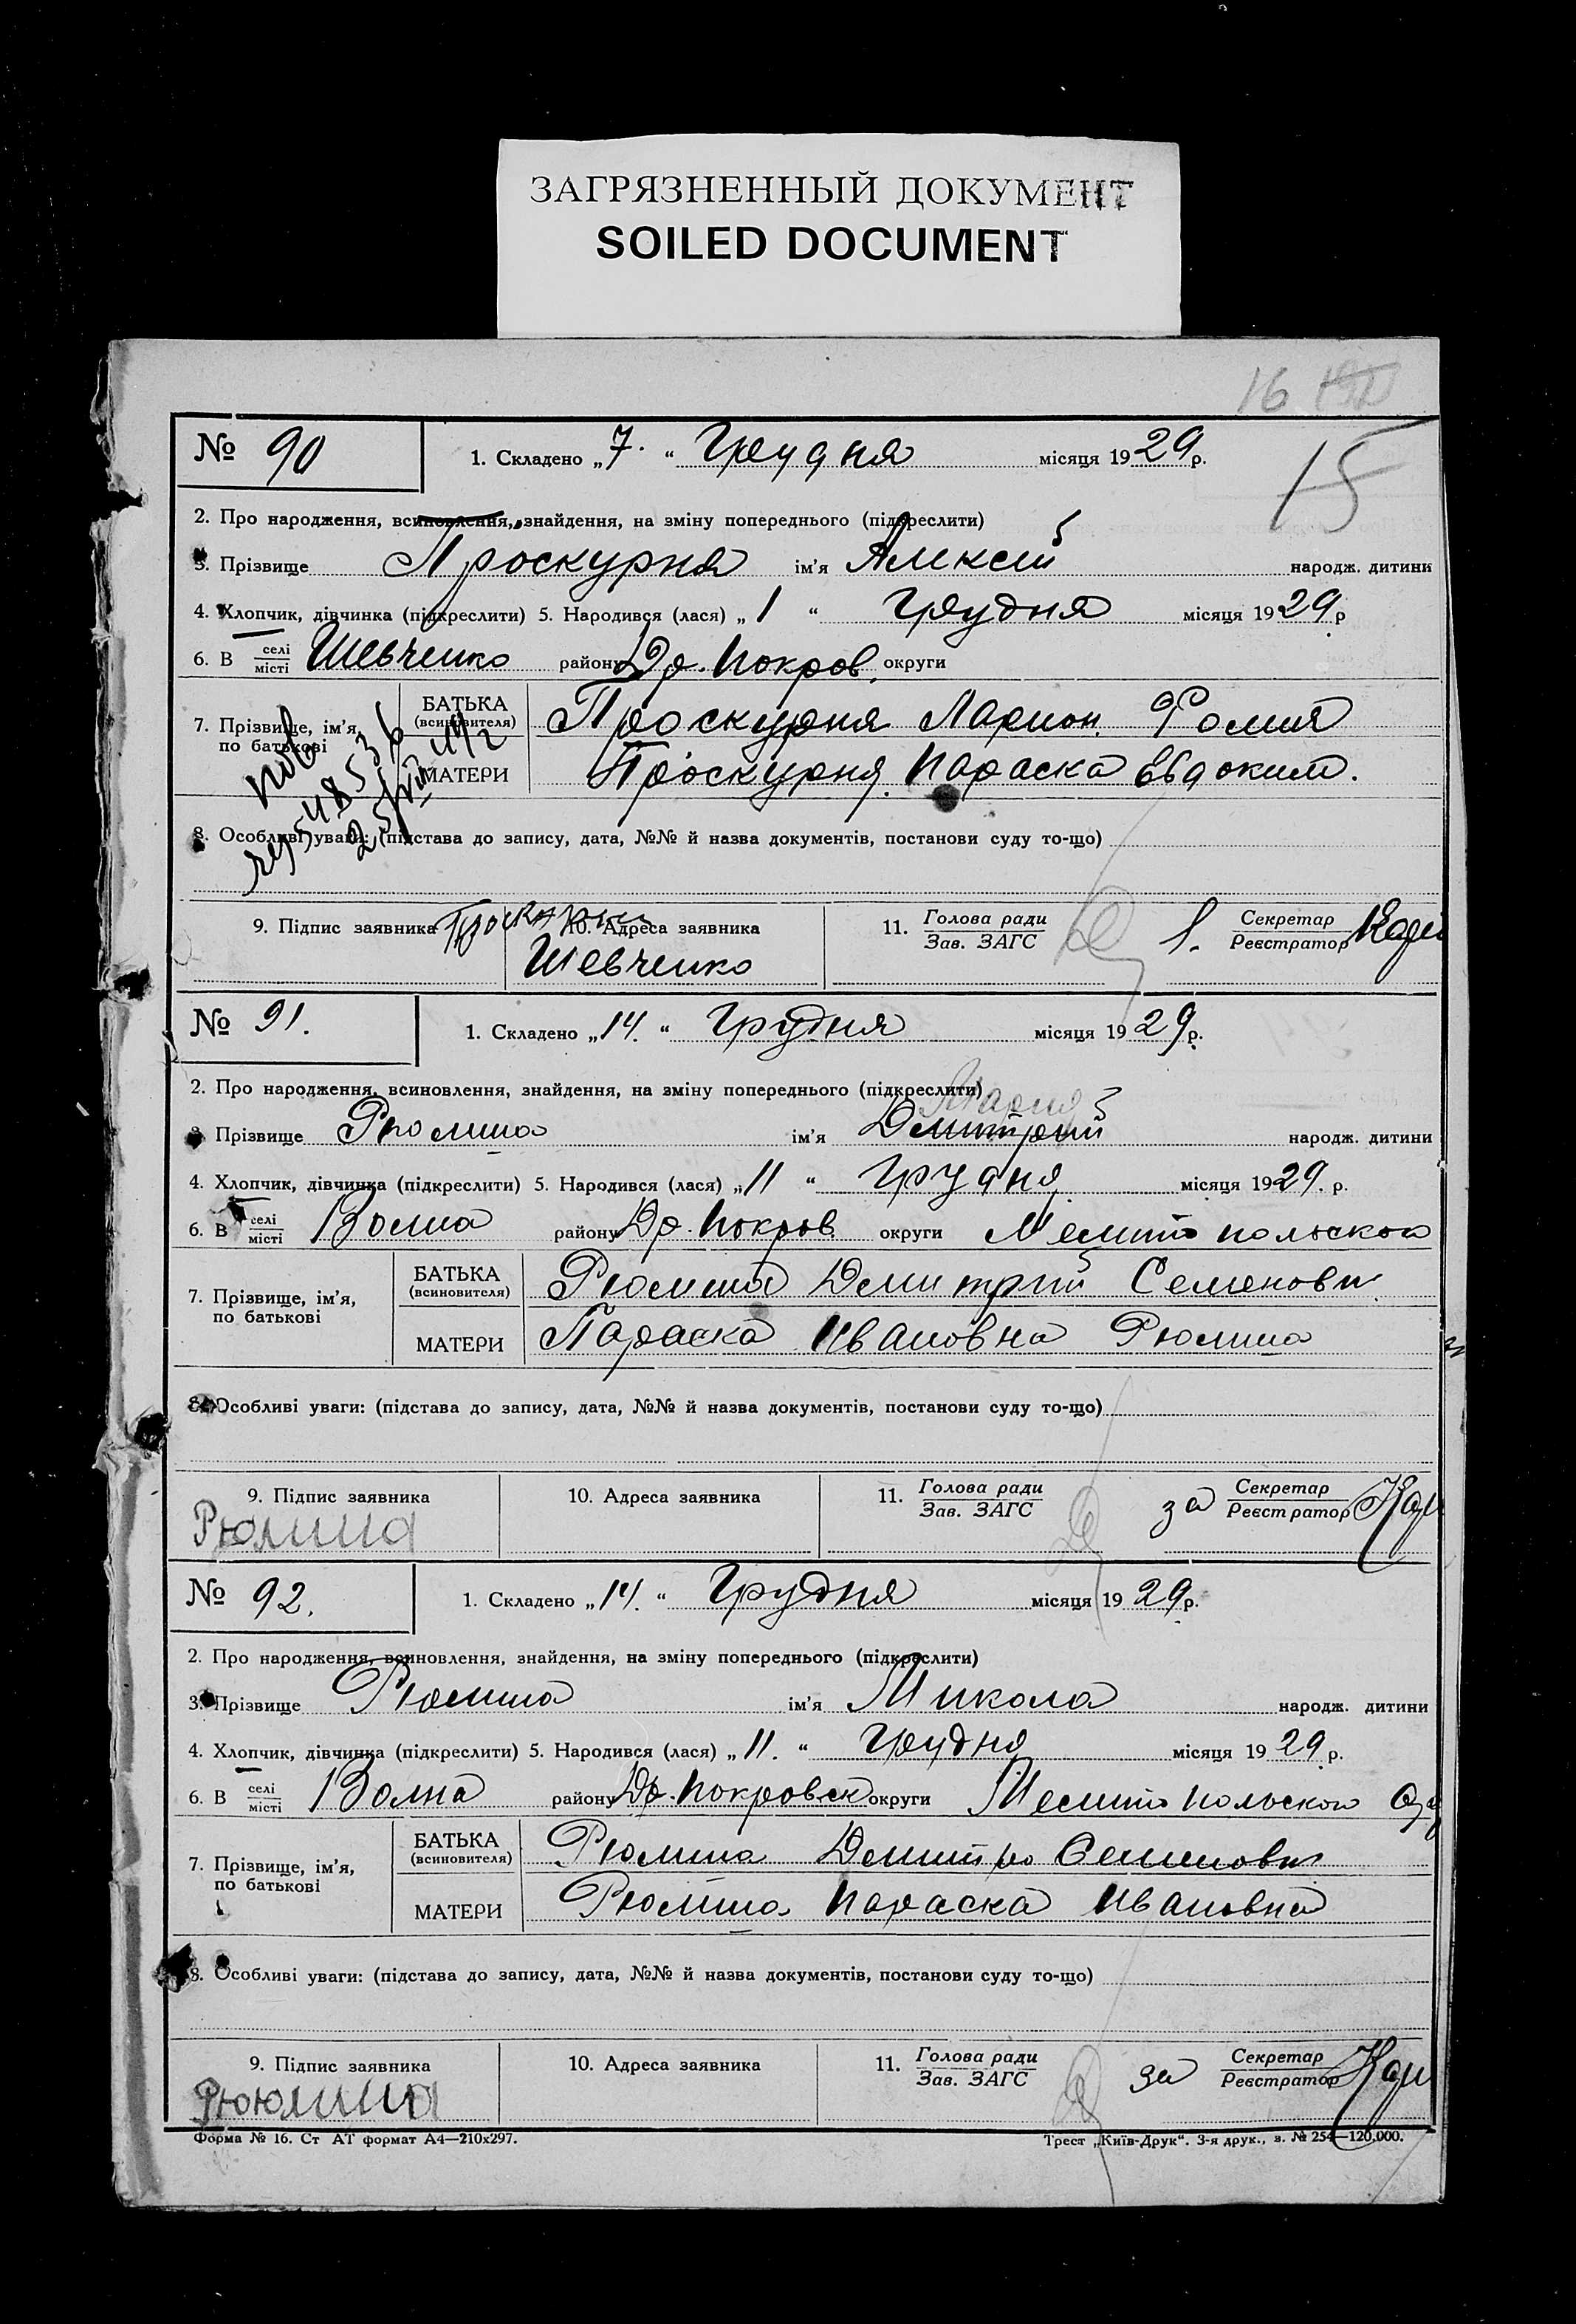 ЗАГРЯЗНЕННЫЙ ДОКУМЕНТ
SOILED DOCUMENT
16
15
№ 90
1. Складено „7.“ Грудня місяця 1929р.
2. Про народження, всиновлення, знайдення, на зміну попереднього (підкреслити)
3. Прізвище Проскурня ім’я Алексей народж. дитини
4. Хлопчик, дівчинка (підкреслити) 5. Народився (лася) „1“ Грудня місяця 1929 р
6. В селі місті Шевченко району Др. Покров. округи
7. Прізвище, ім’я, по батькові
БАТЬКА (всиновителя) Проскурня Ларион. Фомия
МАТЕРИ Проскурня Параска Евдоким.
8. Особливі уваги: (підстава до запису, дата, №№ й назва документів, постанови суду то-що)
9. Підпис заявника 10. Адреса заявника 11. Голова ради Зав. ЗАГС Секретар Реєстратор
Шевченко
№ 91.
1. Складено „14.“ Грудня місяця 1929р.
2. Про народження, всиновлення, знайдення, на зміну попереднього (підкреслити)
Мария
Прізвище Рюмша ім’я Дмитрий народж. дитини
4. Хлопчик, дівчинка (підкреслити) 5. Народився (лася) „11“ Грудня місяця 1929. р.
6. В селі місті Волна району Др. Покров. округи Мелитопольской
7. Прізвище, ім’я, по батькові
БАТЬКА (всиновителя) Рюмша Дмитрий Семенович
МАТЕРИ Параска Ивановна Рюмша
8. Особливі уваги: (підстава до запису, дата, №№ й назва документів, постанови суду то-що)
9. Підпис заявника 10. Адреса заявника 11. Голова ради Зав. ЗАГС за Секретар Реєстратор
Рюмша
№ 92.
1. Складено „14.“ Грудня місяця 1929р.
2. Про народження, всиновлення, знайдення, на зміну попереднього (підкреслити)
3. Прізвище Рюмша ім’я Микола народж. дитини
4. Хлопчик, дівчинка (підкреслити) 5. Народився (лася) „11.“ Грудня місяця 1929. р.
6. В селі місті Волна району Др. Покровск округи Мелитопольской
7. Прізвище, ім’я, по батькові
БАТЬКА (всиновителя) Рюмша Дмитро Семенович
МАТЕРИ Рюмша Параска Ивановна
8. Особливі уваги: (підстава до запису, дата, №№ й назва документів, постанови суду то-що)
9. Підпис заявника 10. Адреса заявника 11. Голова ради Зав. ЗАГС за Секретар Реєстратор
Форма № 16. Ст АТ формат А4—210х297. Трест „Київ-Друк“. 3-я друк., з. № 254—120,000.